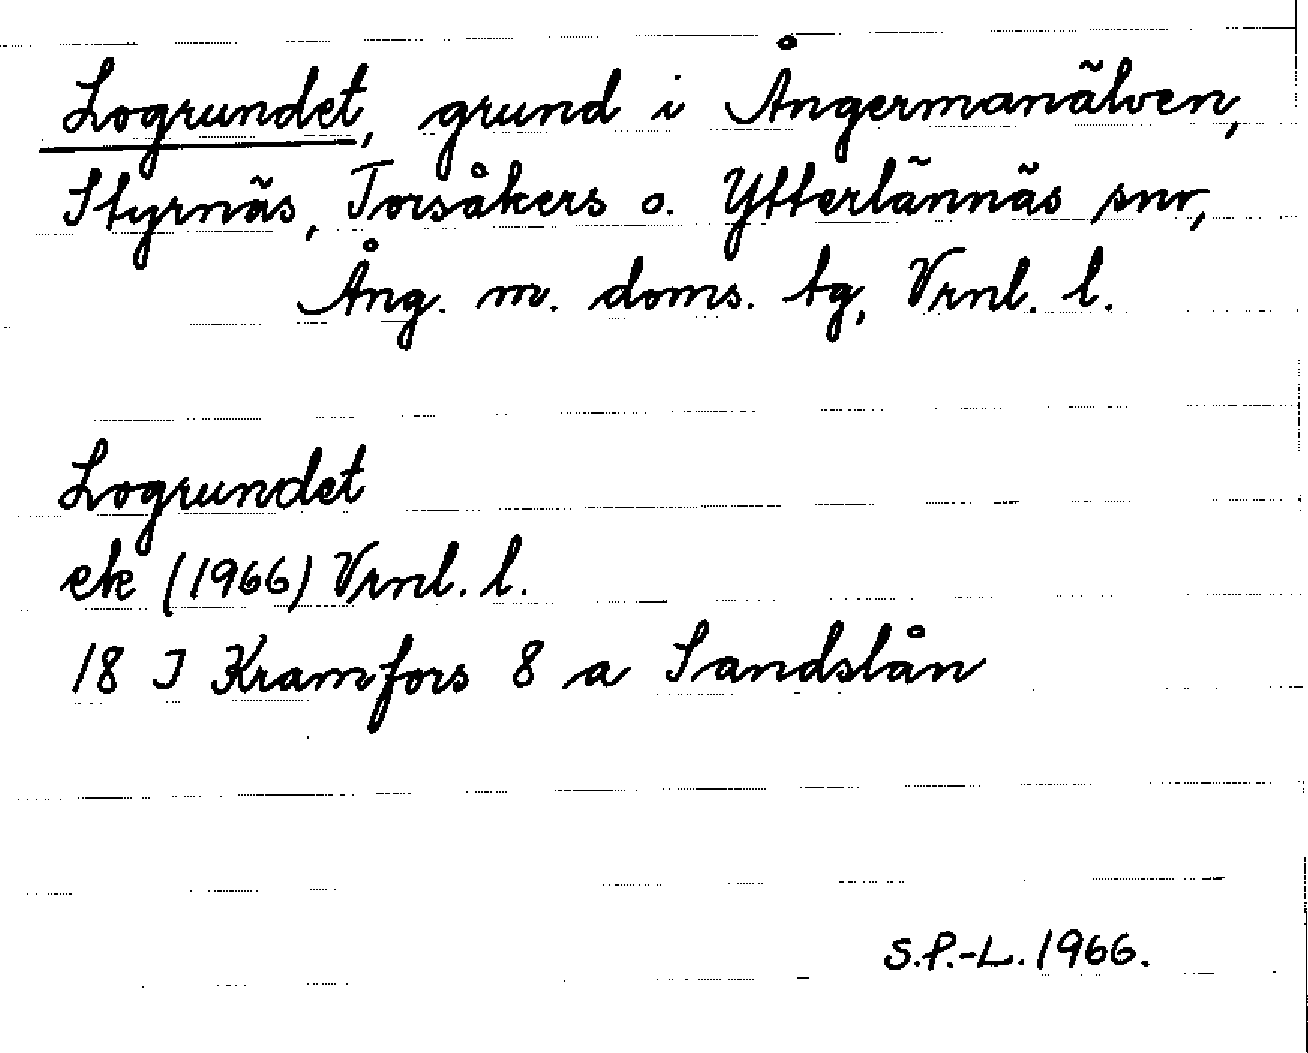 Logrundet, grund i Ångermanälven,
Styrnäs, Torsåkers o. Ytterlännäs snr,
Ång. m. doms. tg, Vrnl. l.
Logrundet
ek (1966) Vrnl. l.
18 I Kramfors 8 a Sandslån
S.P.-L. 1966.